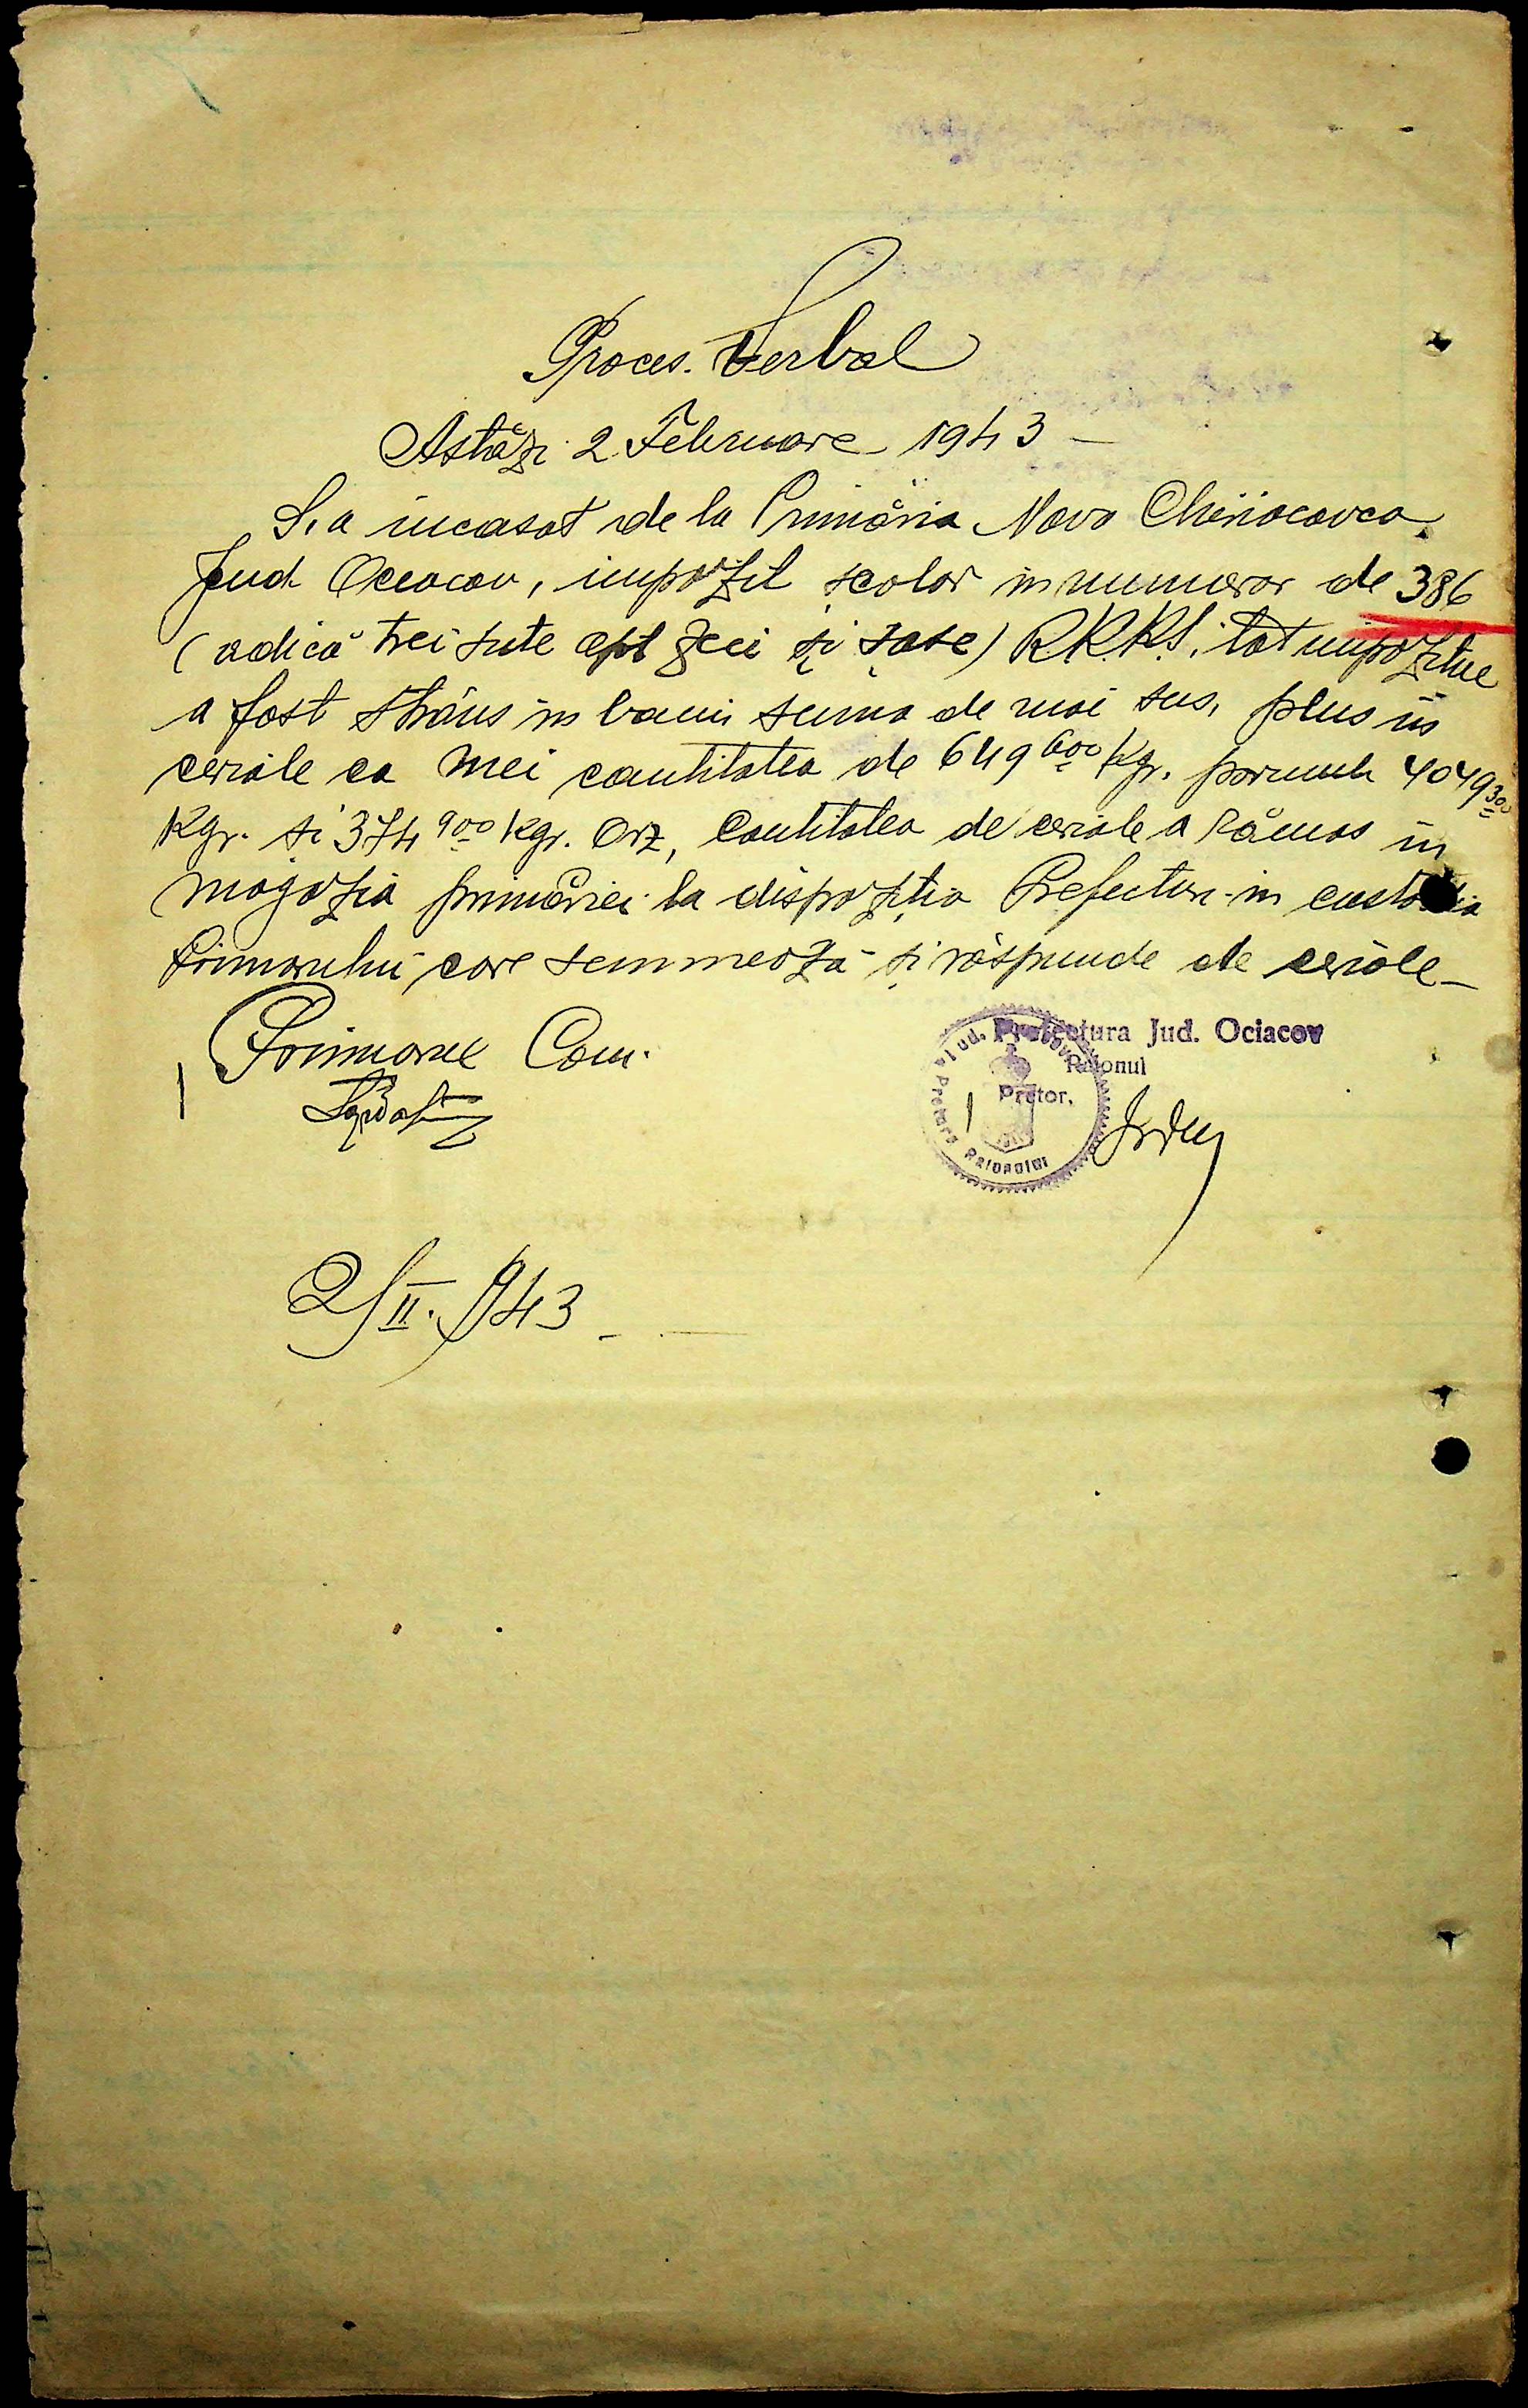 Proces. Verbal
Astăzi 2 Februare 1943 –
S.a incasat de la Primăria Novo
Jud Oceacov, impozit școlar in numerar de 386
(adică trei sute opt zeci și șase) R.K.K.S. tot impozitul
a fost strâns in bani suma de mai sus, plus in
ceriale ca mei cantitatea de 649 600 Kgr. porumb 4049 300
Kgr. și 374 900 Kgr. Orz, Cantitatea de ceriale a rămas in
magazia primăriei la dispoziția Prefecturi in custodia
Primarului care semnează și răspunde de ceriale –
Primarul Com.
Prefectura Jud. Ociacov
Raionul
Pretor,
Jud. Ociacov
Pretura Raionului
2/II. 943 –